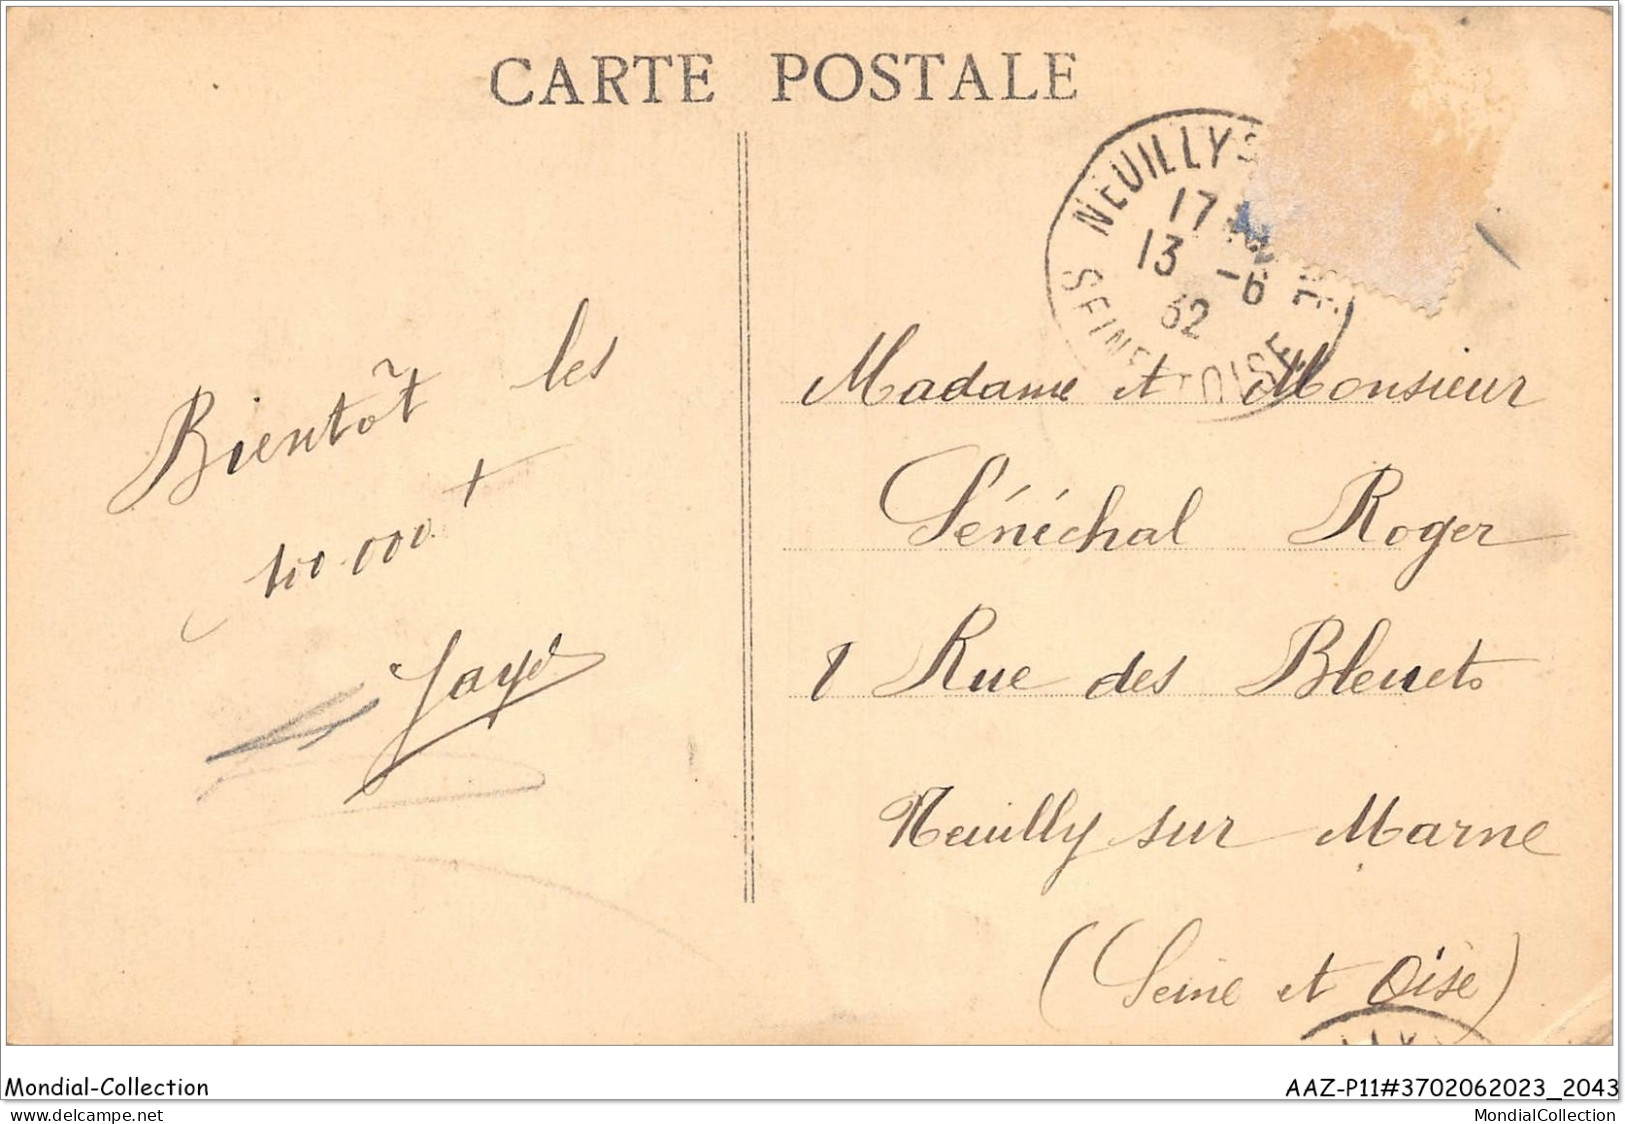 CARTE POSTALE
NEUILLY S
17
13 -6
32
SEINE ET OISE
Bientôt les
100.000 +
Madame et Monsieur
Sénéchal Roger
1 Rue des Bleuets
Neuilly sur Marne
(Seine et Oise)
Mondial-Collection
AAZ-P11#3702062023_2043
www.delcampe.net
MondialCollection